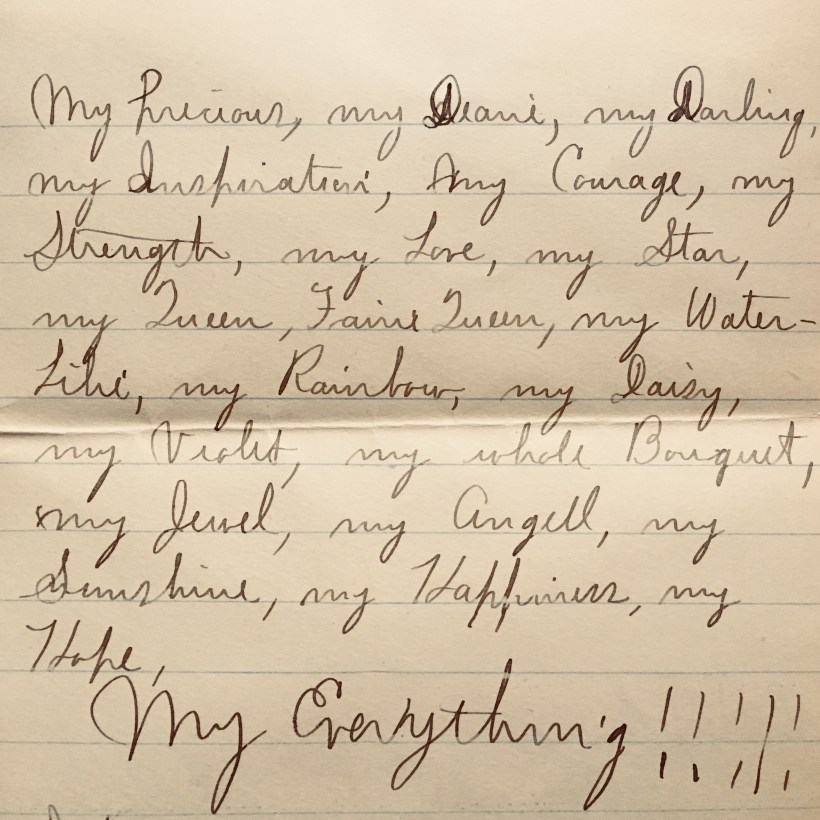 My Precious, my Dearie, my Darling,
my Inspiration, my Courage, my
Strength, my Love, my Star,
my Queen, Fairie Queen, my Water-
Lilie, my Rainbow, my Daisy,
my Violet, my whole Bouquet,
my Jewel, my Angell, my
Sunshine, my Happiness, my
Hope,
My Everything!!!!!